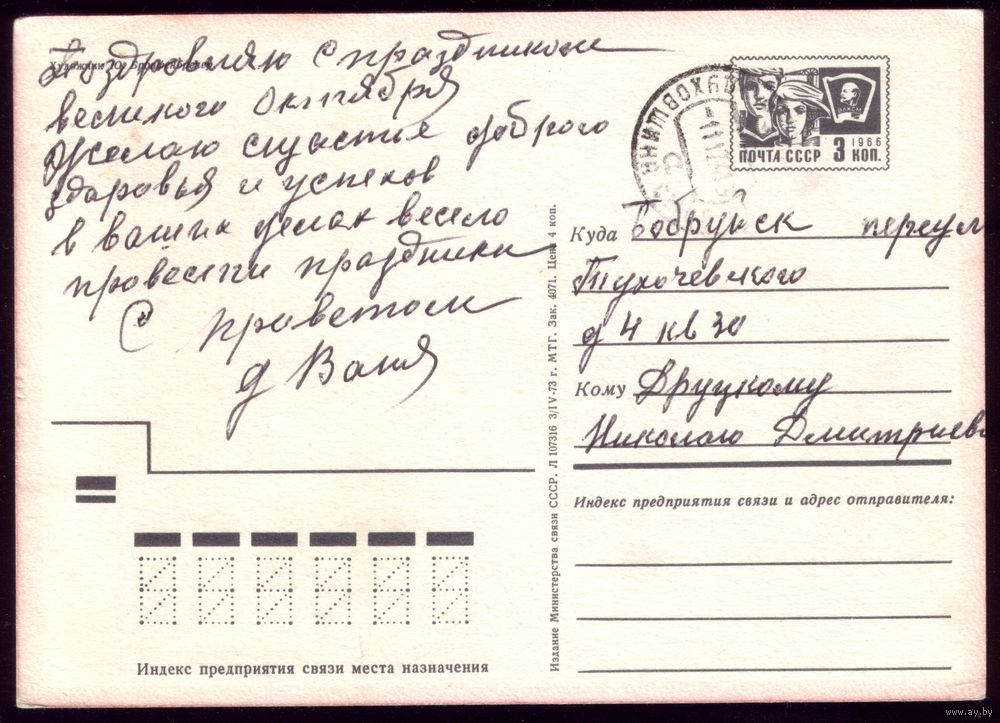 Художник Ю.
Поздравляю с праздником
великого Октября
Желаю счастье доброго
здоровья и успехов
в ваших делах весело
провести праздники
С приветом
д Ваня
1966
ПОЧТА СССР 3 КОП.
ВЛКСМ
Куда Бобруйск переул
Тухочевского
д 4 кв 30
Кому Друцкому
Николаю Дмитриеви
Индекс предприятия связи и адрес отправителя:
Индекс предприятия связи места назначения
Издание Министерства связи СССР. Л 107316 3/IV-73 г. МТГ. Зак. 4071. Цена 4 коп.
www.ay.by